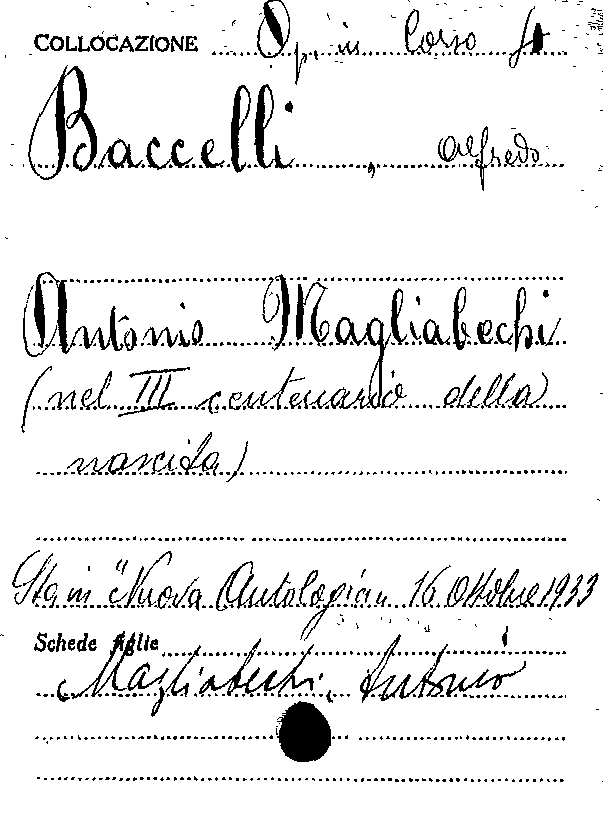 COLLOCAZIONE Op. in Corso
Baccelli, Alfredo
Antonio Magliabechi
(nel III centenario della
nascita)
Sta in "Nuova Antologia" 16 Ottobre 1933
Schede figlie
Magliabechi, Antonio